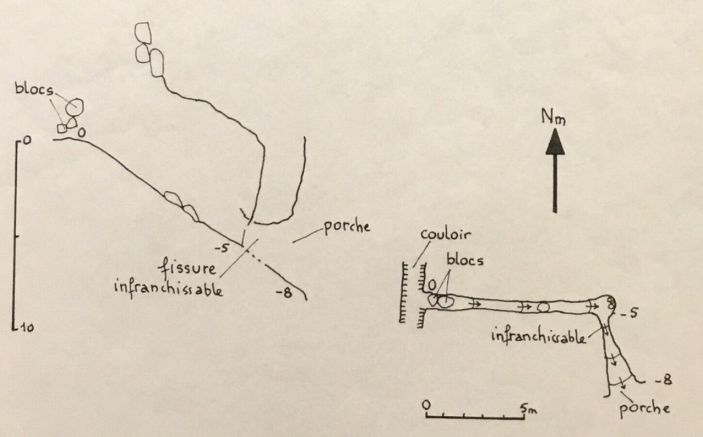 blocs
0
0
-5
fissure
infranchissable
-8
porche
10
Nm
couloir
blocs
0
-5
infranchissable
-8
porche
0
5m